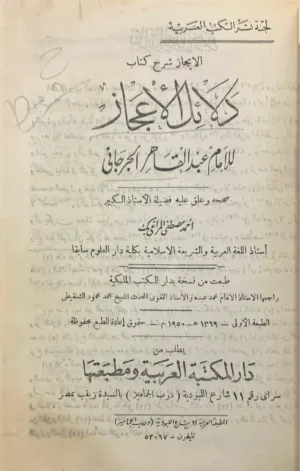 لجنة نشر الكتب العصرية
الايجاز شرح كتاب
دلائل الإعجاز
للامام عبد القاهر الجرجاني
صححه وعلق عليه فضيلة الاستاذ الكبير
احمد مصطفى المراغى بك
أستاذ اللغة العربية والشريعة الاسلامية بكلية دار العلوم سابقا
طبعت من نسخة بدار الكتب الملكية
راجعها الاستاذ الامام محمد عبده والاستاذ اللغوى المحدث الشيخ محمد محمود الشنقيطى
الطبعة الأولى — ١٣٦٩ هـ — ١٩٥٠ م — حقوق إعادة الطبع محفوظة
يطلب من
دار المكتبة العربية ومطبعتها
سراى رقم ١١ شارع اللبودية ( درب الجماميز ) بالسيدة زينب بمصر
المطبعة العربية ١١ شارع اللبودية ( درب الجماميز )
تليفون - ٥٣٠٦٧